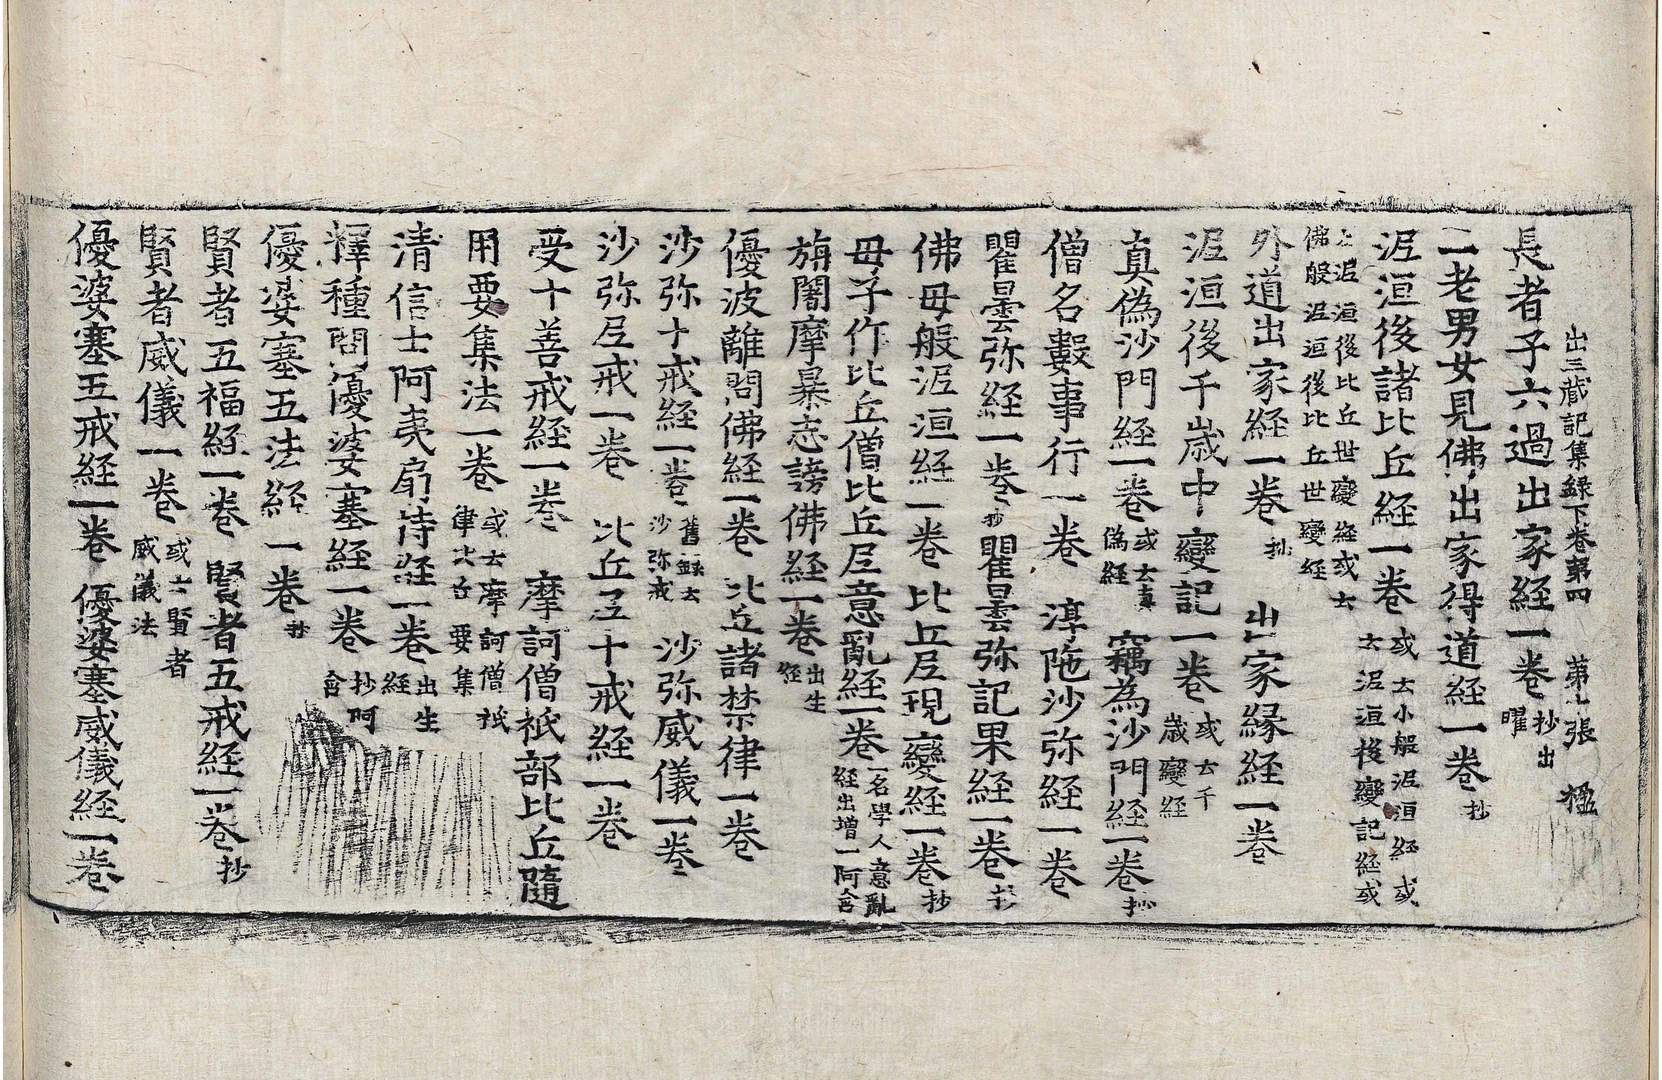 出三藏記集錄下卷第四 第七張 猛
長者子六過出家経一卷 抄出曜
二老男女見佛出家得道経一卷 抄
泥洹後諸比丘経一卷 或云小般泥洹経或云泥洹後變記経或
云泥洹後比丘世變経或云佛般泥洹後比丘世變経
外道出家経一卷 抄 出家緣経一卷
泥洹後千歲中變記一卷 或云千歲變経
真偽沙門経一卷 或云真偽経 竊為沙門経一卷 抄
僧名數事行一卷 淳陁沙弥経一卷
瞿曇弥経一卷 抄 瞿曇弥記果経一卷 抄
佛母般泥洹経一卷 比丘尼現變経一卷 抄
母子作比丘僧比丘尼意亂経一卷 一名學人意亂経出增一阿含
旃闍摩暴志謗佛経一卷 出生経
優波離問佛経一卷 比丘諸禁律一卷
沙弥十戒経一卷 舊錄云沙弥戒 沙弥威儀一卷
沙弥尼戒一卷 比丘尼十戒経一卷
受十善戒経一卷 摩訶僧祇部比丘隨
用要集法一卷 或云摩訶僧祇律比丘要集
清信士阿夷扇持経一卷 出生経
釋種問優婆塞経一卷 抄阿含
優婆塞五法経一卷 抄
賢者五福経一卷 賢者五戒経一卷 抄
賢者威儀一卷 或云賢者威儀法
優婆塞五戒経一卷 優婆塞威儀経一卷